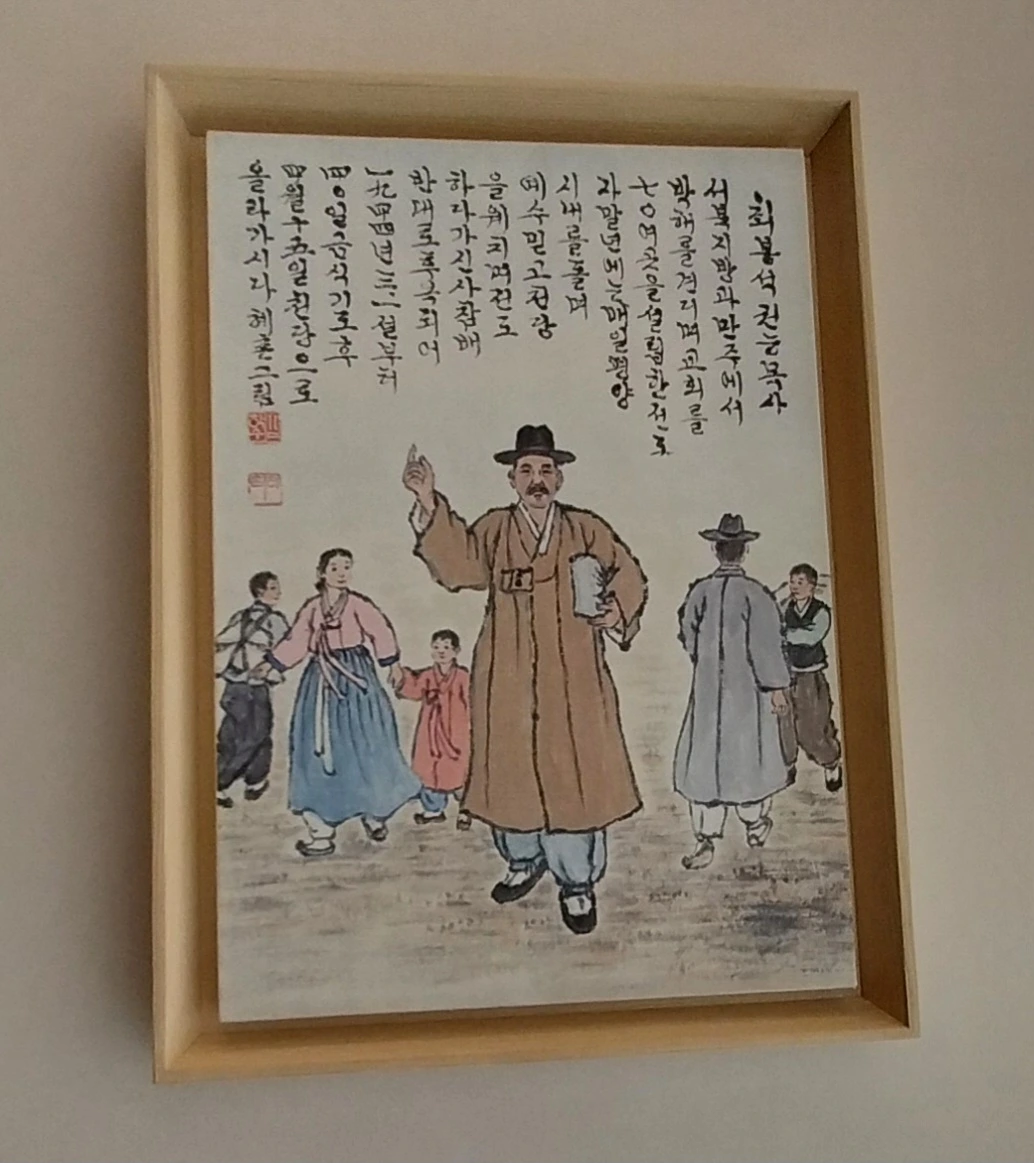 최봉석 권능목사
서북지방과 만주에서
박해를 견디며 교회를
七〇여곳을 설립한 전도
자 말년에는 매일 평양
시내를 돌며
예수 믿고 천당
을 웨치며 전도
하다가 신사참배
반대로 투옥되어
一九四四년 三一절부터
四〇일 금식기도 후
四월 十五일 천당으로
올라가시다 혜촌 그림